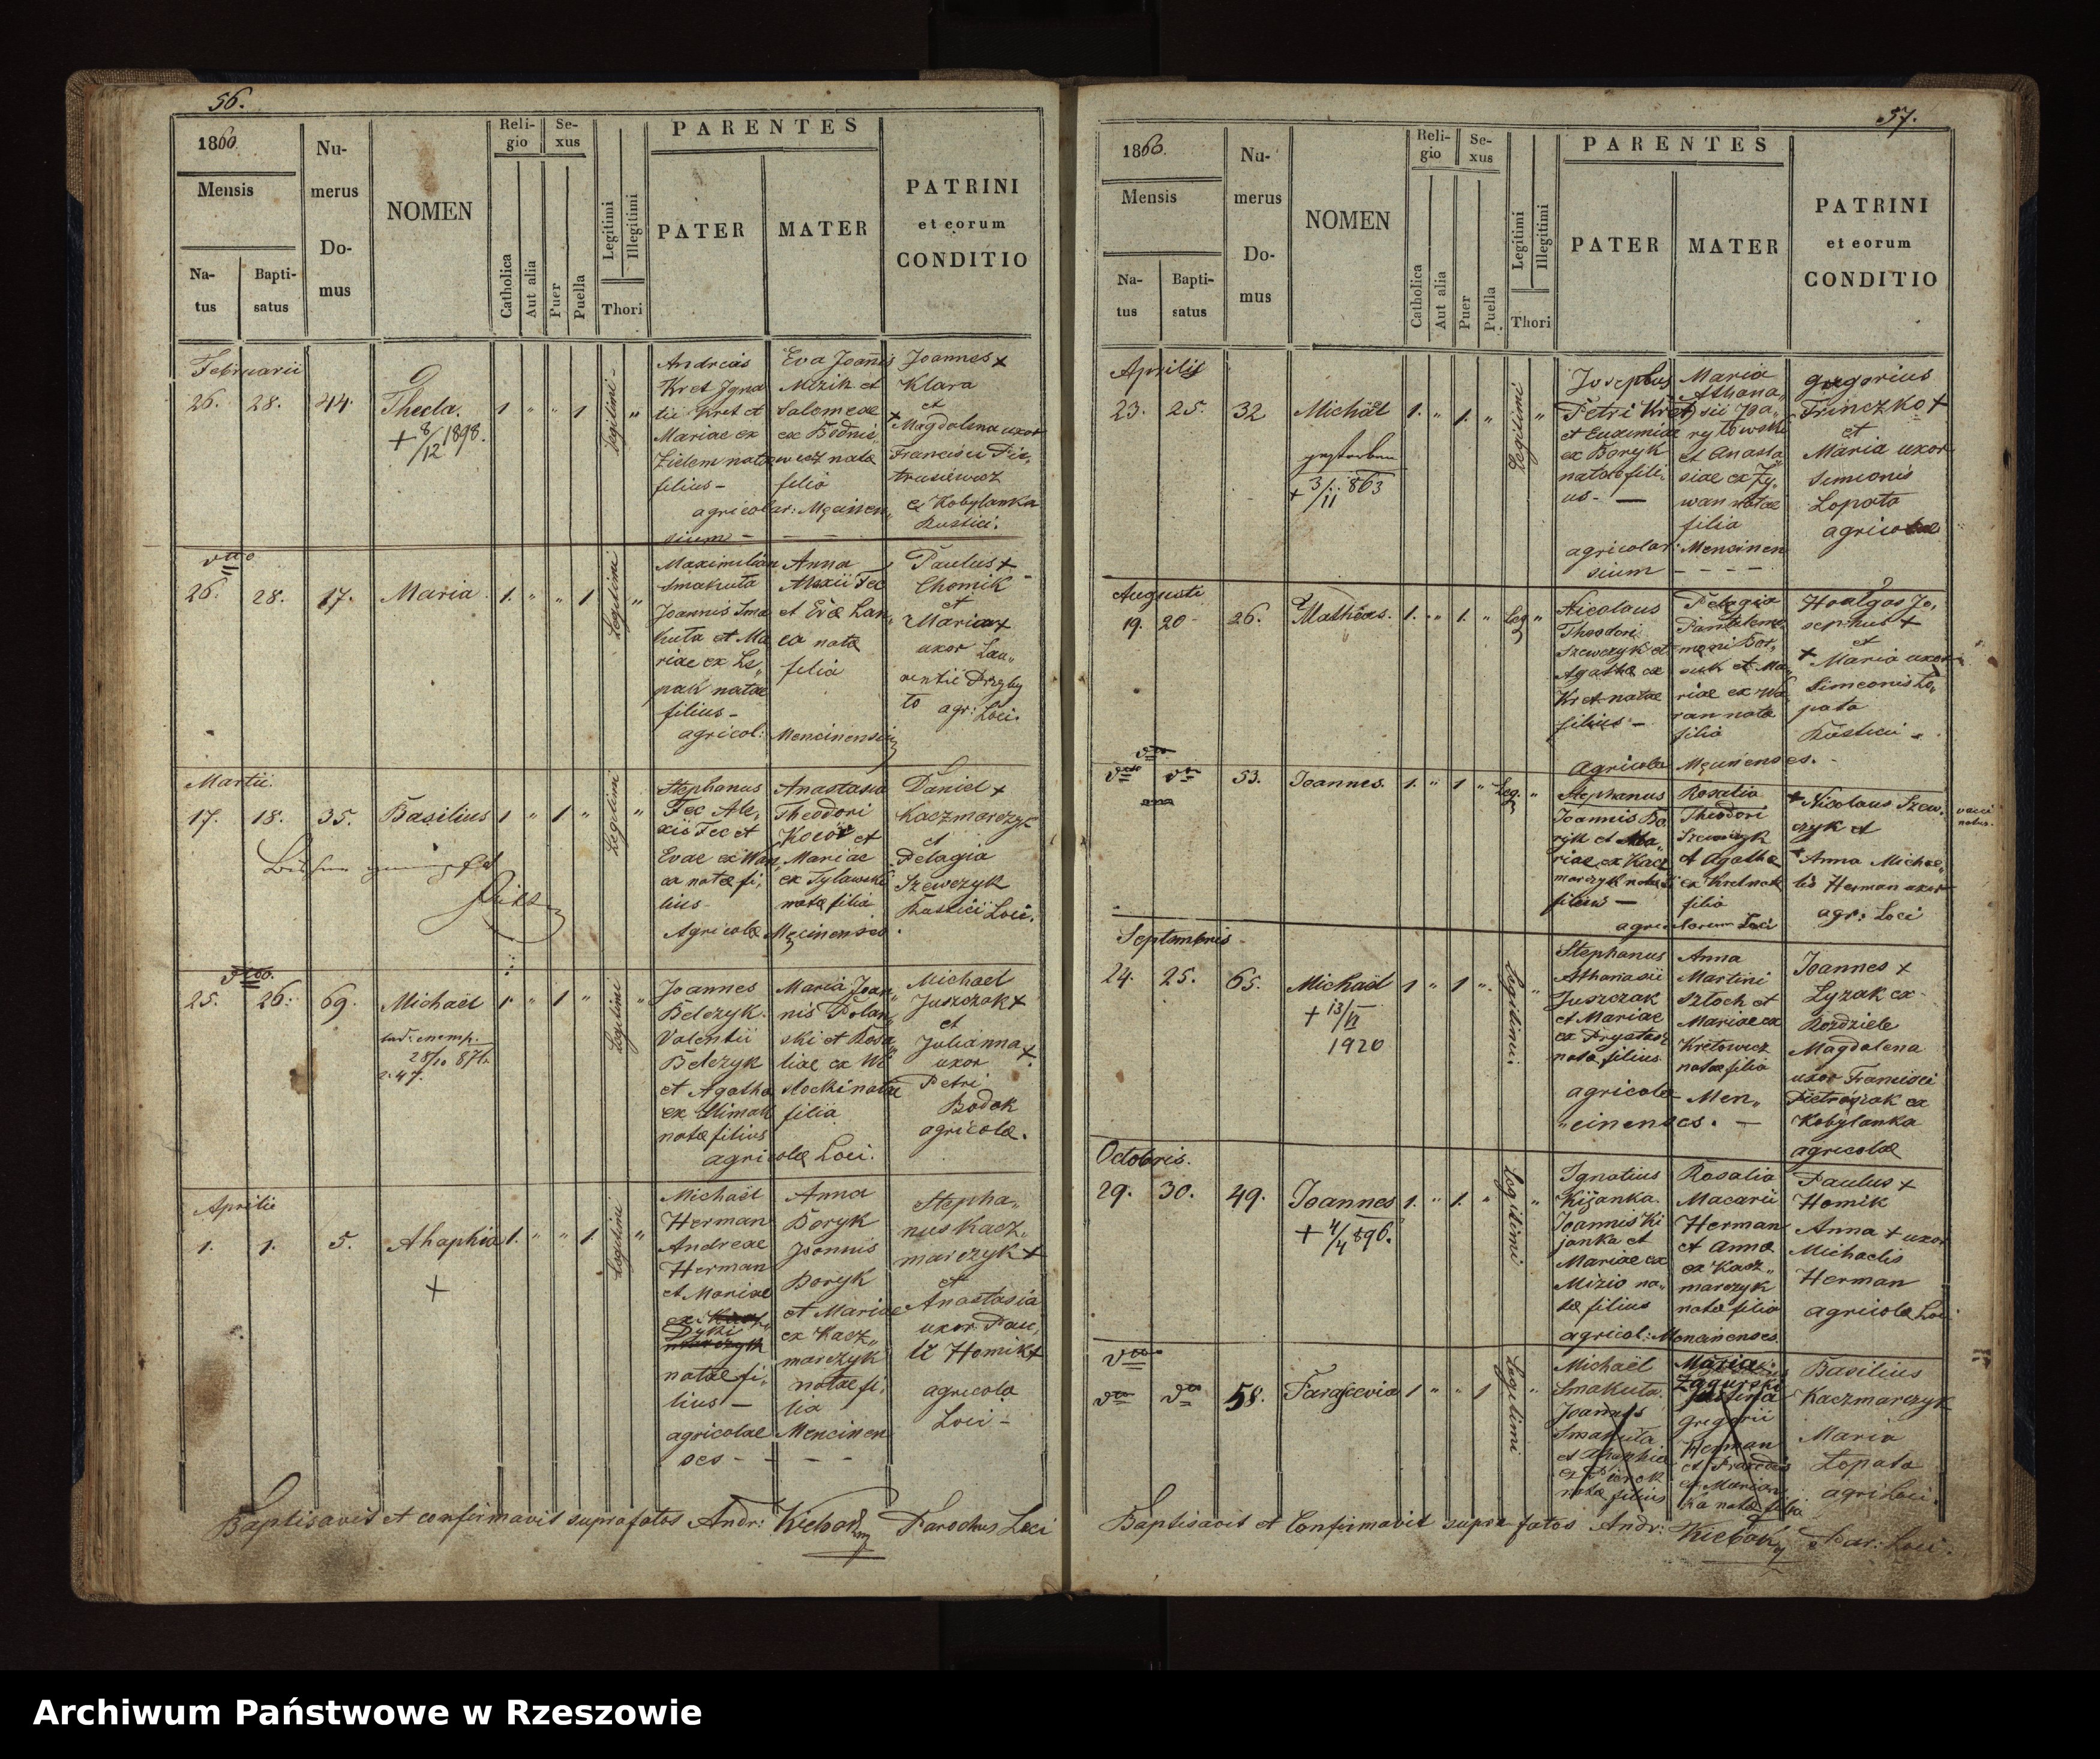 56.
1860.
Mensis
Na-
tus
Bapti-
satus
Nu-
merus
Do-
mus
NOMEN
Reli-
gio
Catholica
Aut alia
Se-
xus
Puer
Puella
Legitimi
Illegitimi
Thori
PARENTES
PATER
MATER
PATRINI
et eorum
CONDITIO
Februarii
26. 28. 44. Thecla. 1 " " 1 Legitimi "
+ 8/12 1898.
Andreas
Kret Igna
tii Kret et
Mariae ex
natae
filius -
Eva Joannis
Mizik et
Salomeae
ex Bednie
wicz nata
filia
agricolar: Męcinen
sium -
Joannes +
Klara
et
+ Magdalena uxor
Francisci Pie,
trusiewicz
e Kobylanka
Rustici.
dtto
26. 28. 17. Maria. 1. " " 1 Legitimi "
Maximilian
Smakuta
Joannis Sma
kuta et Ma
riae ex Le"
pak natae
filius -
Anna
Alexii Fec
et Evae Lan"
ea nata
filia
agricol: Mencinensis
Paulus +
Chomik
et
Maria +
uxor Lau"
rentii Przyby
to agr: Loci.
Martii.
17. 18. 35. Basilius 1 " 1 " Legitimi "
Stephanus
Fec Ale,
xii Fec et
Evae ex Wan
natae fi,
lius -
Anastasia
Theodori
et
Mariae
ex Tylawski
nata filia
Agricolae Męcinenses.
Daniel +
Kaczmarczyk
et
Pelagia
Szewczyk
Rustici Loci.
dtto.
25. 26. 69. Michaël 1 " 1 " Legitimi "
Joannes
Belczyk
Valentii
Belczyk
et Agatha
ex Klimak
nata filius
Maria Joan"
nis Polan"
ski et Rosa"
liae ex Wi
slocki natae
filia
agricolae Loci.
Michael
Juszczak +
et
Julianna +
uxor
Petri
Bodak
agricolae.
Aprilis
1. 1. 5. Ahaphia 1. " " 1. Legitimi "
+
Michaël
Herman
Andreae
Herman
et Mariae
Dyki
natae fi"
lius -
Anna
Boryk
Joannis
Boryk
et Mariae
ex Kacz"
marczyk
natae fi,
lia
agricolae Mencinen
ses - - - -
Stepha"
nus Kacz"
marczyk +
et
Anastasia
uxor Pau,
li Homik +
agricola
Loci -
Baptisavit et confirmavit suprafatos Andr: Kiebak Parochus Loci
57.
1860.
Mensis
Na-
tus
Bapti-
satus
Nu-
merus
Do-
mus
NOMEN
Reli-
gio
Catholica
Aut alia
Se-
xus
Puer
Puella
Legitimi
Illegitimi
Thori
PARENTES
PATER
MATER
PATRINI
et eorum
CONDITIO
Aprilis
23. 25. 32 Michäel 1. " 1. " Legitimi "
gestorben
+ 3/11 863
Josephus
Petri Kret
et Euxemiae
ex Boryk
natae fili,
us - —
Maria
Athana"
sii Pa"
rylowski
et Anasta"
siae ex Dy"
wan natae
filia
agricolar: Mencinen
sium - - - -
Gregorius
Trinczko +
et
Maria uxor
Simeonis
Lopata
agricolae
Augusti
19. 20 - 26. Mathëas. 1. " 1. " Leg "
Nicolaus
Theodori
Szewczyk et
Agatha ex
Kret natae
filius -
Pelagia
Panteleme,
moni Bor"
suk et Ma,
riae ex Wa
nata
filia
Agricola Męcinenses. -
Joʼ
sephus +
et
+ Maria uxor
Simeonis Lo"
pata
Rustici -
dtto
dtto dtto 53. Joannes. 1. " 1 " Leg. "
Stephanus
Joannis Bo,
ryk et Ma"
riae ex Kacz
marczyk natae
filius —
Rosalia
Theodori
Szewczyk
et Agatha
ex Kret nata
filia
agricolarum Loci
+ Nicolaus Szew,
czyk et
+ Anna Michae"
lis Herman uxor
agr: Loci
vacci
natus.
Septembris
24. 25. 65. Michaël 1 " 1 ". Legitimi "
+ 13/VI
1920
Stephanus
Athanasii
Juszczak
et Mariae
ex Prystasz
nata filius
Anna
Martini
Szloch et
Mariae ex
Kretowicz
natae filia
agricolae Men"
cinenses. —
Joannes +
Lyzak ex
Rozdziele
Magdalena
uxor Francisci
Pietraszak ex
Kobylanka
agricolae
Octobris.
29. 30. 49. Joannes 1. " 1. " Legitimi "
+ 4/4 896.
Ignatius
Kijanka
Joannis Ki
janka et
Mariae ex
Mizio na"
tae filius
Rosalia
Macarii
Herman
et Annae
ex Kacz"
marczyk
nata filia
agricol: Mencinenses
Paulus +
Homik
Anna + uxor
Michaelis
Herman
agricolae Loci
dtto
dtto dtto 58. Parascevia 1 " " 1 Legitimi "
Michaël
Smakuta.
Joannis
Smakuta
et Ahaphia
ex Pierok
nata filius
Maria
Zagurski
Justina
Gregorii
Herman
et
ex Marian
ka nata filia
Basilius
Kaczmarczyk
Maria
Lopata
agri Loci.
Baptisavit et Confirmavit supra fatos Andr: Kiebak Par: Loci.
Archiwum Państwowe w Rzeszowie